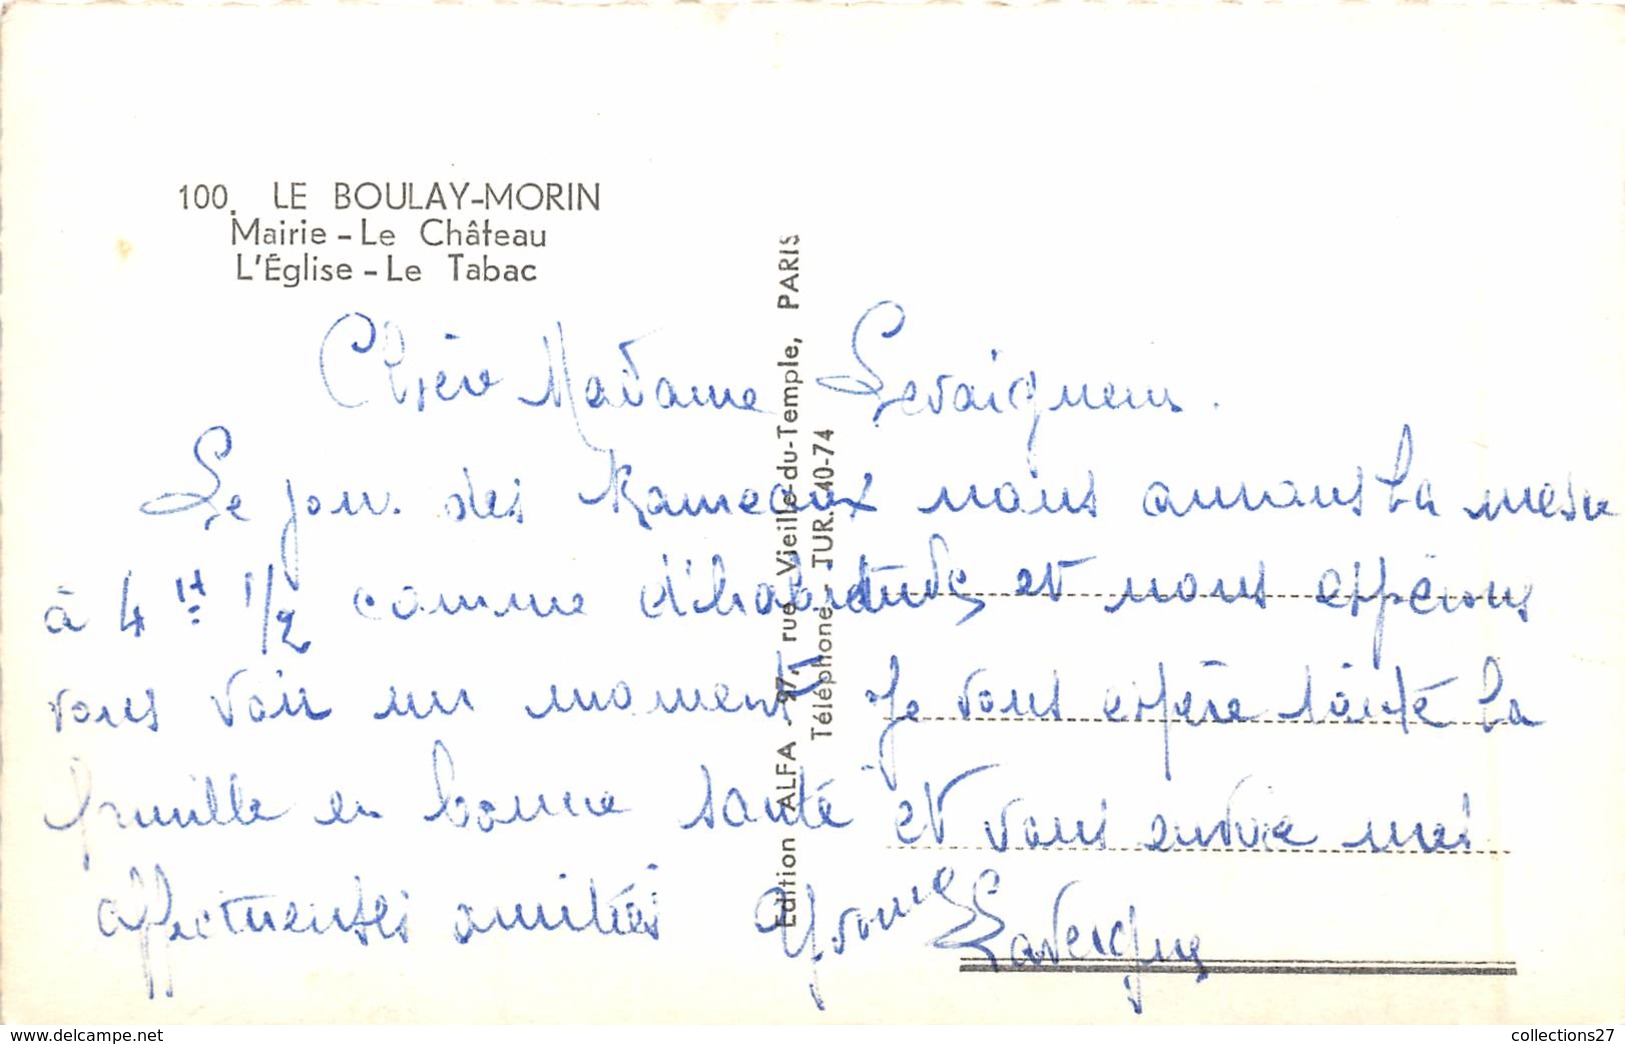 100. LE BOULAY-MORIN
Mairie - Le Château
L'Église - Le Tabac
Edition ALFA - 97, rue Vieille-du-Temple, PARIS
Téléphone: TUR. 40-74
Chère Madame
Le jour des Rameaux nous aurons la messe
à 4 1/2 comme d'habitude, et nous espérons
vous voir un moment Je vous espère toute la
famille en bonne santé et vous envoie mes
affectueuses amitiés Yvonne Lavergne
collections27